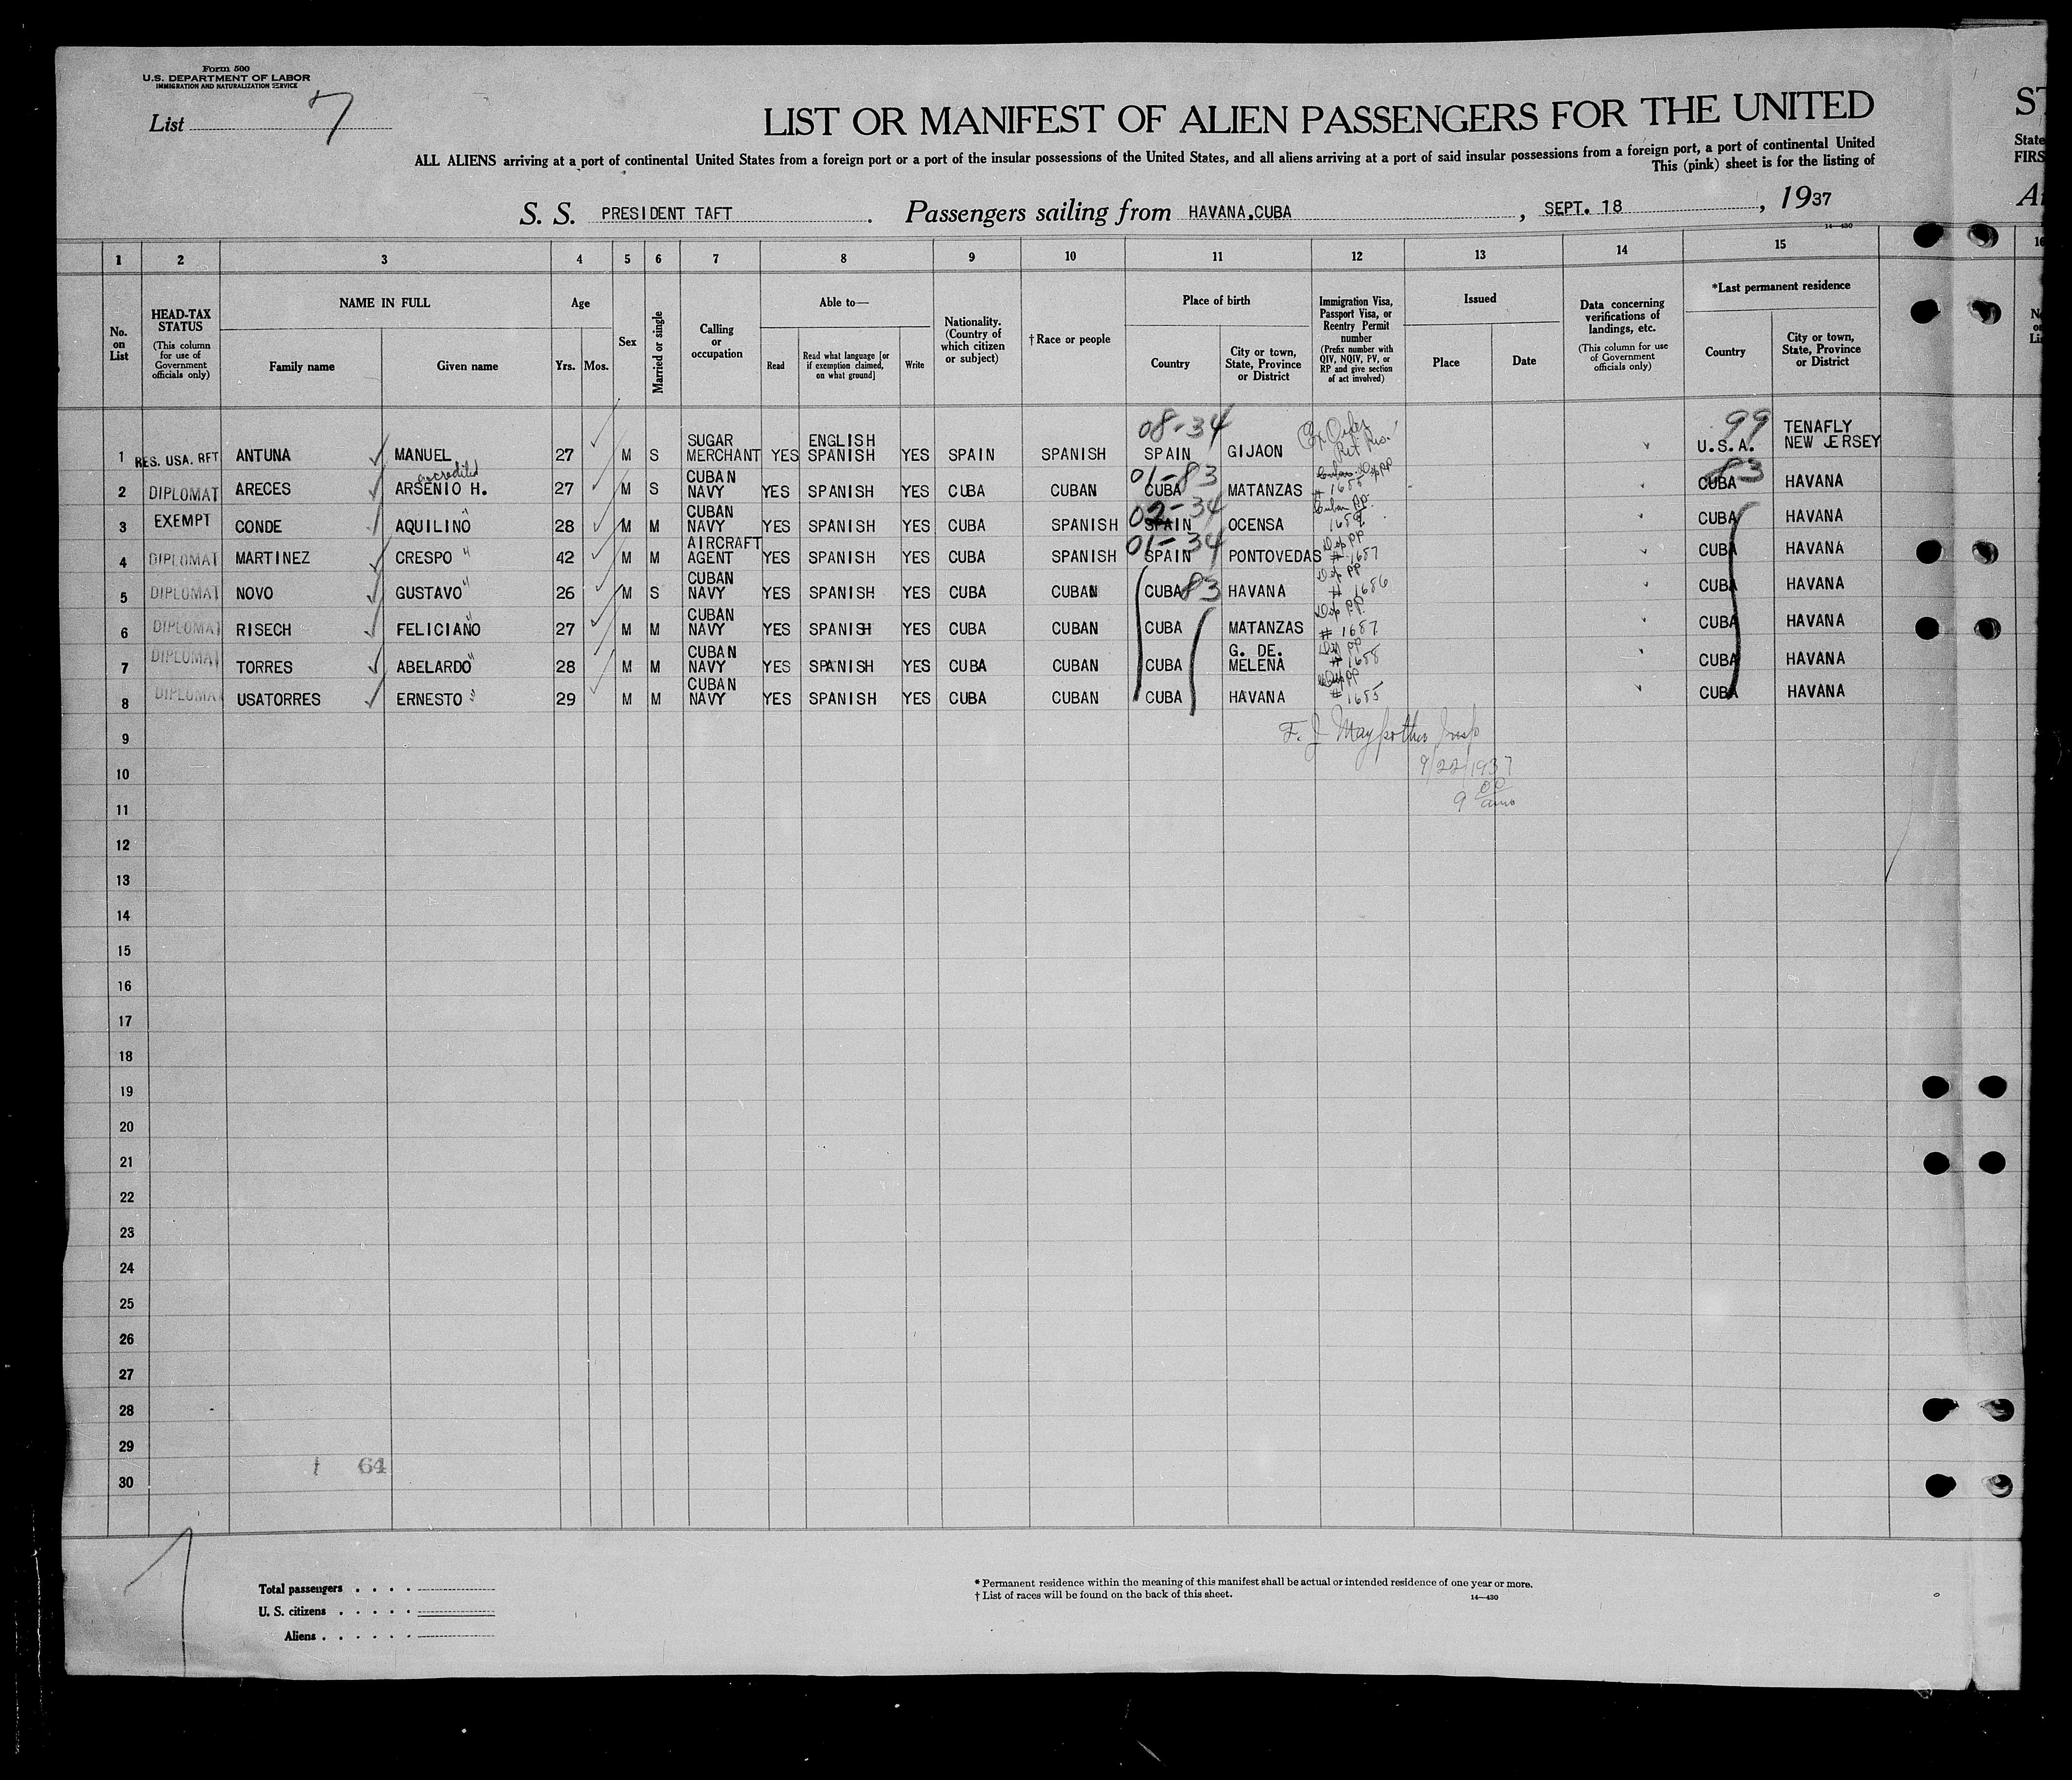 Form 500
U.S. DEPARTMENT OF LABOR
IMMIGRATION AND NATURALIZATION SERVICE
List 7
LIST OR MANIFEST OF ALIEN PASSENGERS FOR THE UNITED
ST
ALL ALIENS arriving at a port of continental United States from a foreign port or a port of the insular possessions of the United States, and all aliens arriving at a port of said insular possessions from a foreign port, a port of continental United
State
This (pink) sheet is for the listing of
FIRS
S. S. PRESIDENT TAFT. Passengers sailing from HAVANA,CUBA, SEPT. 18, 1937
14—430
1 2 3 4 5 6 7 8 9 10 11 12 13 14 15 16
No. on List
HEAD-TAX STATUS
(This column for use of Government officials only)
NAME IN FULL
Family name
Given name
Age
Yrs. Mos.
Sex
Married or single
Calling or occupation
Able to—
Read
Read what language [or if exemption claimed, on what ground]
Write
Nationality. (Country of which citizen or subject)
† Race or people
Place of birth
Country
City or town, State, Province or District
Immigration Visa, Passport Visa, or Reentry Permit number
(Prefix number with QIV, NQIV, PV, or RP and give section of act involved)
Issued
Place
Date
Data concerning verifications of landings, etc.
(This column for use of Government officials only)
*Last permanent residence
Country
City or town, State, Province or District
08-34 99
1 RES. USA. RFT ANTUNA MANUEL 27 M S SUGAR MERCHANT YES ENGLISH SPANISH YES SPAIN SPANISH SPAIN GIJAON U.S.A. TENAFLY NEW JERSEY
accredited 01-83 83
2 DIPLOMAT ARECES ARSENIO H. 27 M S CUBAN NAVY YES SPANISH YES CUBA CUBAN CUBA MATANZAS # 1655 CUBA HAVANA
02-34
3 EXEMPT CONDE AQUILINO " 28 M M CUBAN NAVY YES SPANISH YES CUBA SPANISH SPAIN OCENSA CUBA HAVANA
01-34
4 DIPLOMAT MARTINEZ CRESPO " 42 M M AIRCRAFT AGENT YES SPANISH YES CUBA SPANISH SPAIN PONTOVEDAS Dip PP # 1657 CUBA HAVANA
5 DIPLOMAT NOVO GUSTAVO " 26 M S CUBAN NAVY YES SPANISH YES CUBA CUBAN CUBA 83 HAVANA Dip PP # 1656 CUBA HAVANA
6 DIPLOMAT RISECH FELICIANO " 27 M M CUBAN NAVY YES SPANISH YES CUBA CUBAN CUBA MATANZAS Dip PP. # 1687 CUBA HAVANA
7 DIPLOMAT TORRES ABELARDO " 28 M M CUBAN NAVY YES SPANISH YES CUBA CUBAN CUBA G. DE. MELENA Dip PP # 1658 CUBA HAVANA
8 DIPLOMAT USATORRES ERNESTO " 29 M M CUBAN NAVY YES SPANISH YES CUBA CUBAN CUBA HAVANA Dip PP # 1655 CUBA HAVANA
9
F. J. Insp
10
9/22/1937
11
9 00 am
12
13
14
15
16
17
18
19
20
21
22
23
24
25
26
27
28
29
64
30
Total passengers . . . .
U. S. citizens . . . . .
Aliens . . . . . .
* Permanent residence within the meaning of this manifest shall be actual or intended residence of one year or more.
† List of races will be found on the back of this sheet.
14—430